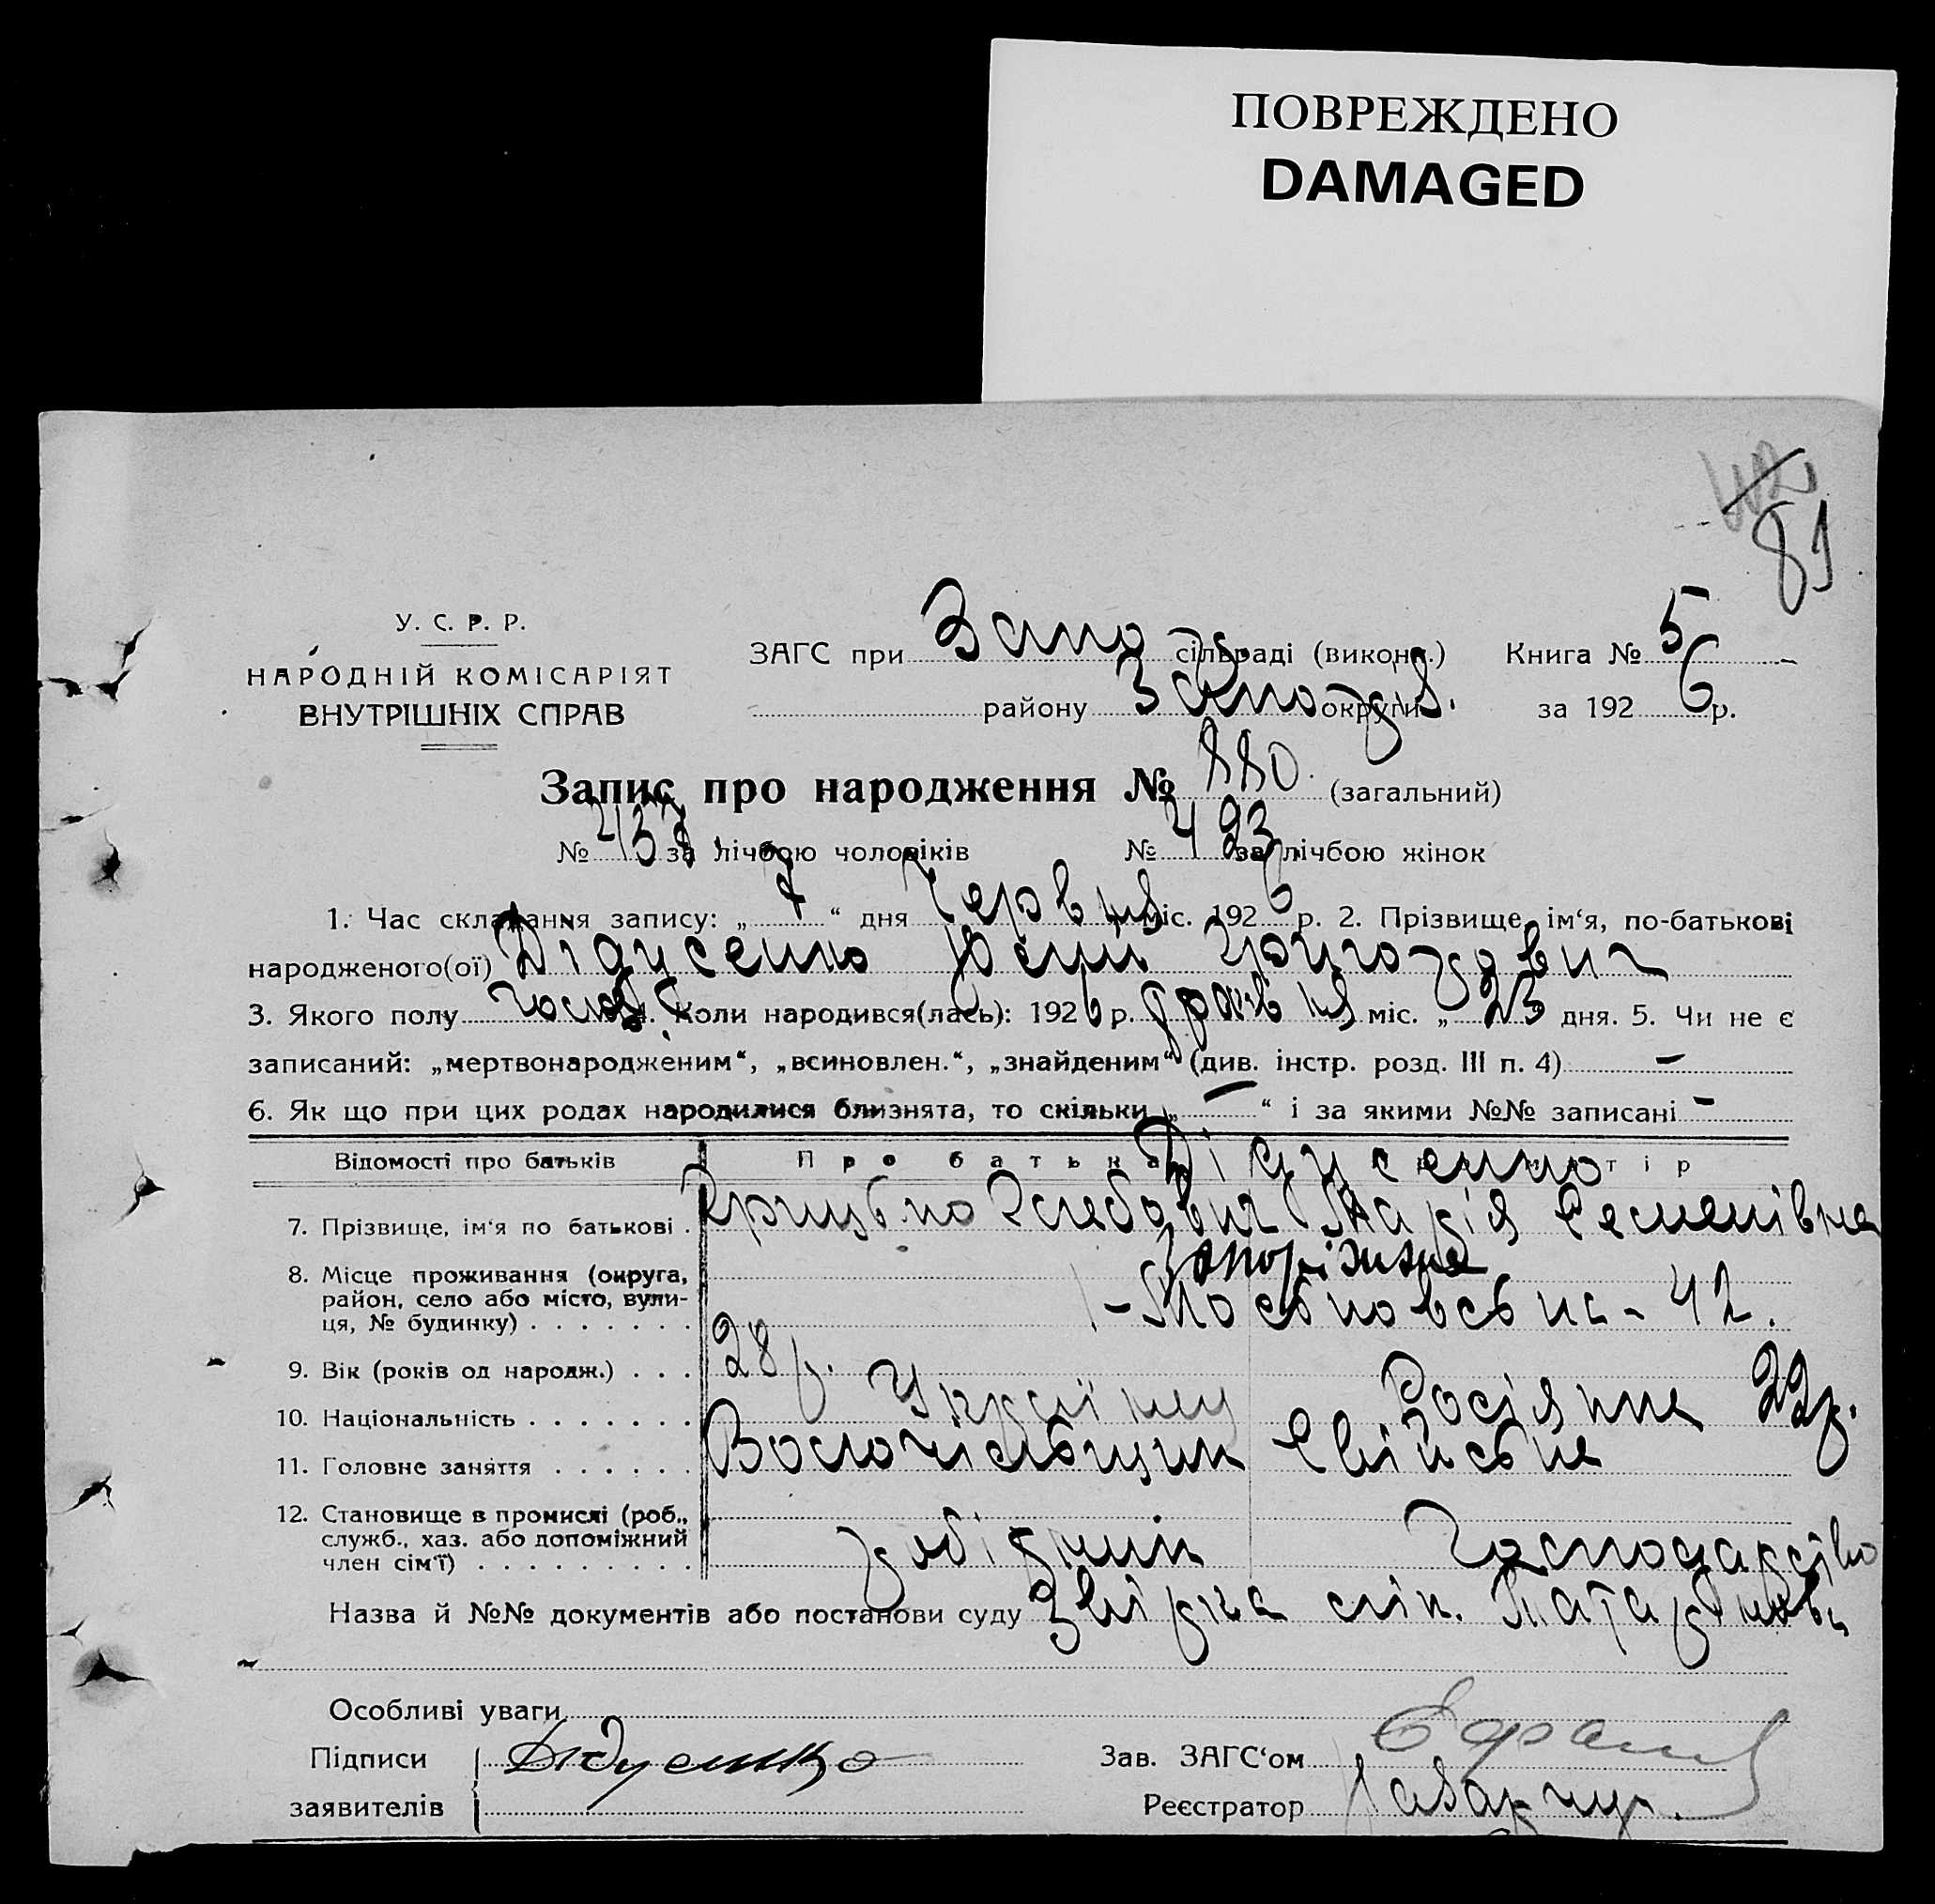 ПОВРЕЖДЕНО
DAMAGED
81
У. С. Р. Р.
НАРОДНІЙ КОМІСАРІЯТ
ВНУТРІШНІХ СПРАВ
ЗАГС при Запо сільраді (викон.) Книга № 5
району Запо округи за 192 6 р.
Запис про народження № 880. (загальний)
№ за лічбою чоловіків № 423 за лічбою жінок
1. Час складання запису: „ 7 “ дня Червня міс. 192 6 р. 2. Прізвище, ім‘я, по-батькові
народженого(ої) Дідусенко
3. Якого полу чолов 4. Коли народився(лась): 192 6 р. травня міс. „ 23 дня. 5. Чи не є
записаний: „мертвонародженим“, „всиновлен.“, „знайденим“ (див. інстр. розд. III п. 4) –
6. Як що при цих родах народилися близнята, то скільки „ – “ і за якими №№ записані –
Відомості про батьків Про батька Дідусенко
7. Прізвище, ім‘я по батькові . Марія Семенівна
8. Місце проживання (округа, район, село або місто, вулиця, № будинку) . . . . . . . Запоріжжя
– Московська – 42.
9. Вік (років од народж.) . . . 28 р. 22 р.
10. Національність . . . . . . . Українец Росіянка
11. Головне заняття . . . . . . Свійське
12. Становище в промислі (роб., служб., хаз. або допоміжний член сім‘ї) . . . . . . . . . робітник господарство
Назва й №№ документів або постанови суду
Особливі уваги
Підписи Дядусенко Зав. ЗАГС‘ом
заявителів Реєстратор